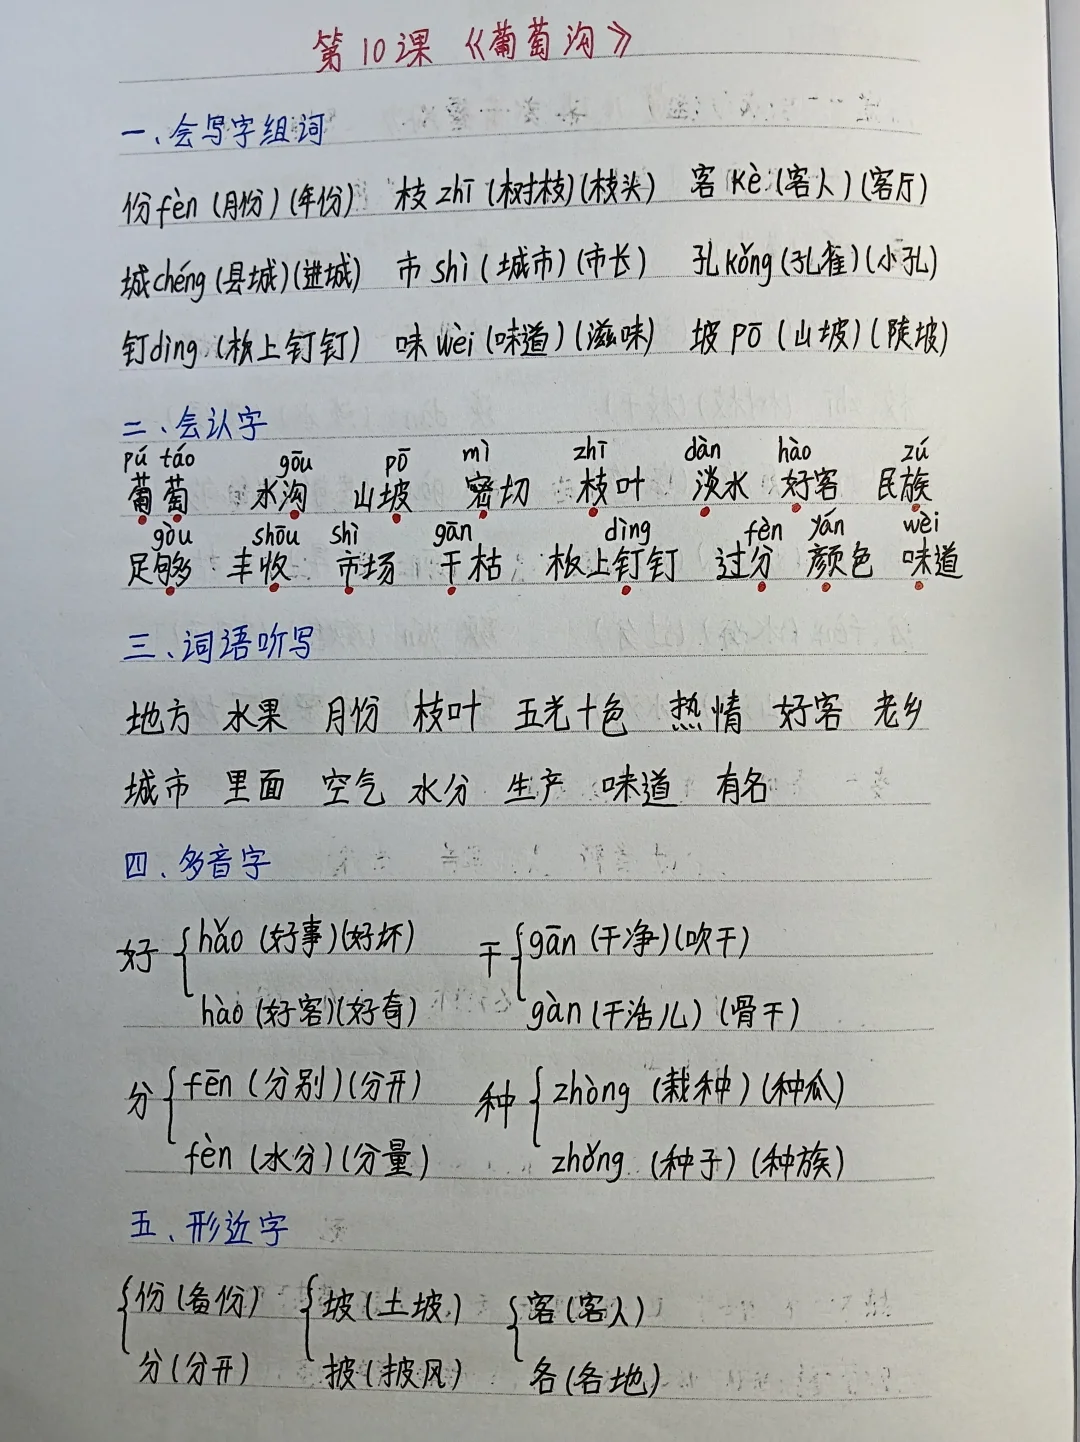 第10课《葡萄沟》
一、会写字组词
份fèn(月份)(年份) 枝zhī(树枝)(枝头) 客kè(客人)(客厅)
城chéng(县城)(进城) 市shì(城市)(市长) 孔kǒng(孔雀)(小孔)
钉dìng(板上钉钉) 味wèi(味道)(滋味) 坡pō(山坡)(陡坡)
二、会认字
pú táo gōu pō mì zhī dàn hào zú
葡萄 水沟 山坡 密切 枝叶 淡水 好客 民族
gòu shōu shì gān dìng fèn yán wèi
足够 丰收 市场 干枯 板上钉钉 过分 颜色 味道
三、词语听写
地方 水果 月份 枝叶 五光十色 热情 好客 老乡
城市 里面 空气 水分 生产 味道 有名
四、多音字
好{hǎo(好事)(好坏) 干{gān(干净)(吹干)
hào(好客)(好奇) gàn(干活儿)(骨干)
分{fēn(分别)(分开) 种{zhòng(栽种)(种瓜)
fèn(水分)(分量) zhǒng(种子)(种族)
五、形近字
{份(备份) {坡(土坡) {客(客人)
分(分开) 披(披风) 各(各地)